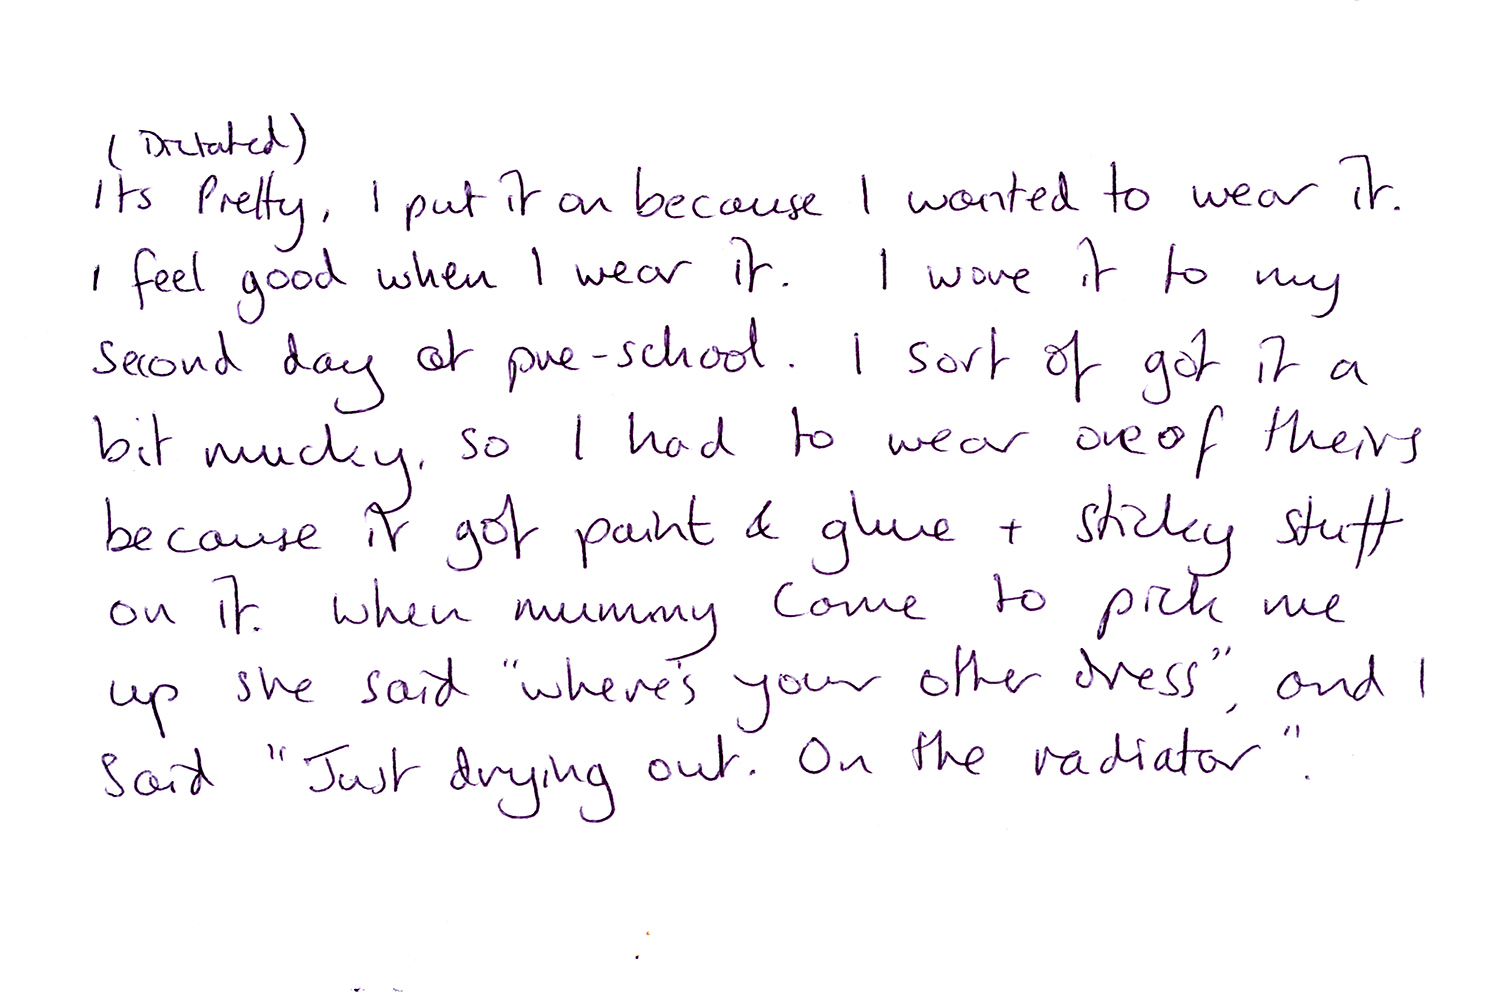 (Dictated)
Its Pretty, I put it on because I wanted to wear it.
I feel good when I wear it. I wore it to my
second day at pre-school. I sort of got it a
bit mucky, so I had to wear one of theirs
because it got paint & glue + sticky stuff
on it. When mummy came to pick me
up she said "where's your other dress", and I
said "Just drying out. On the radiator".